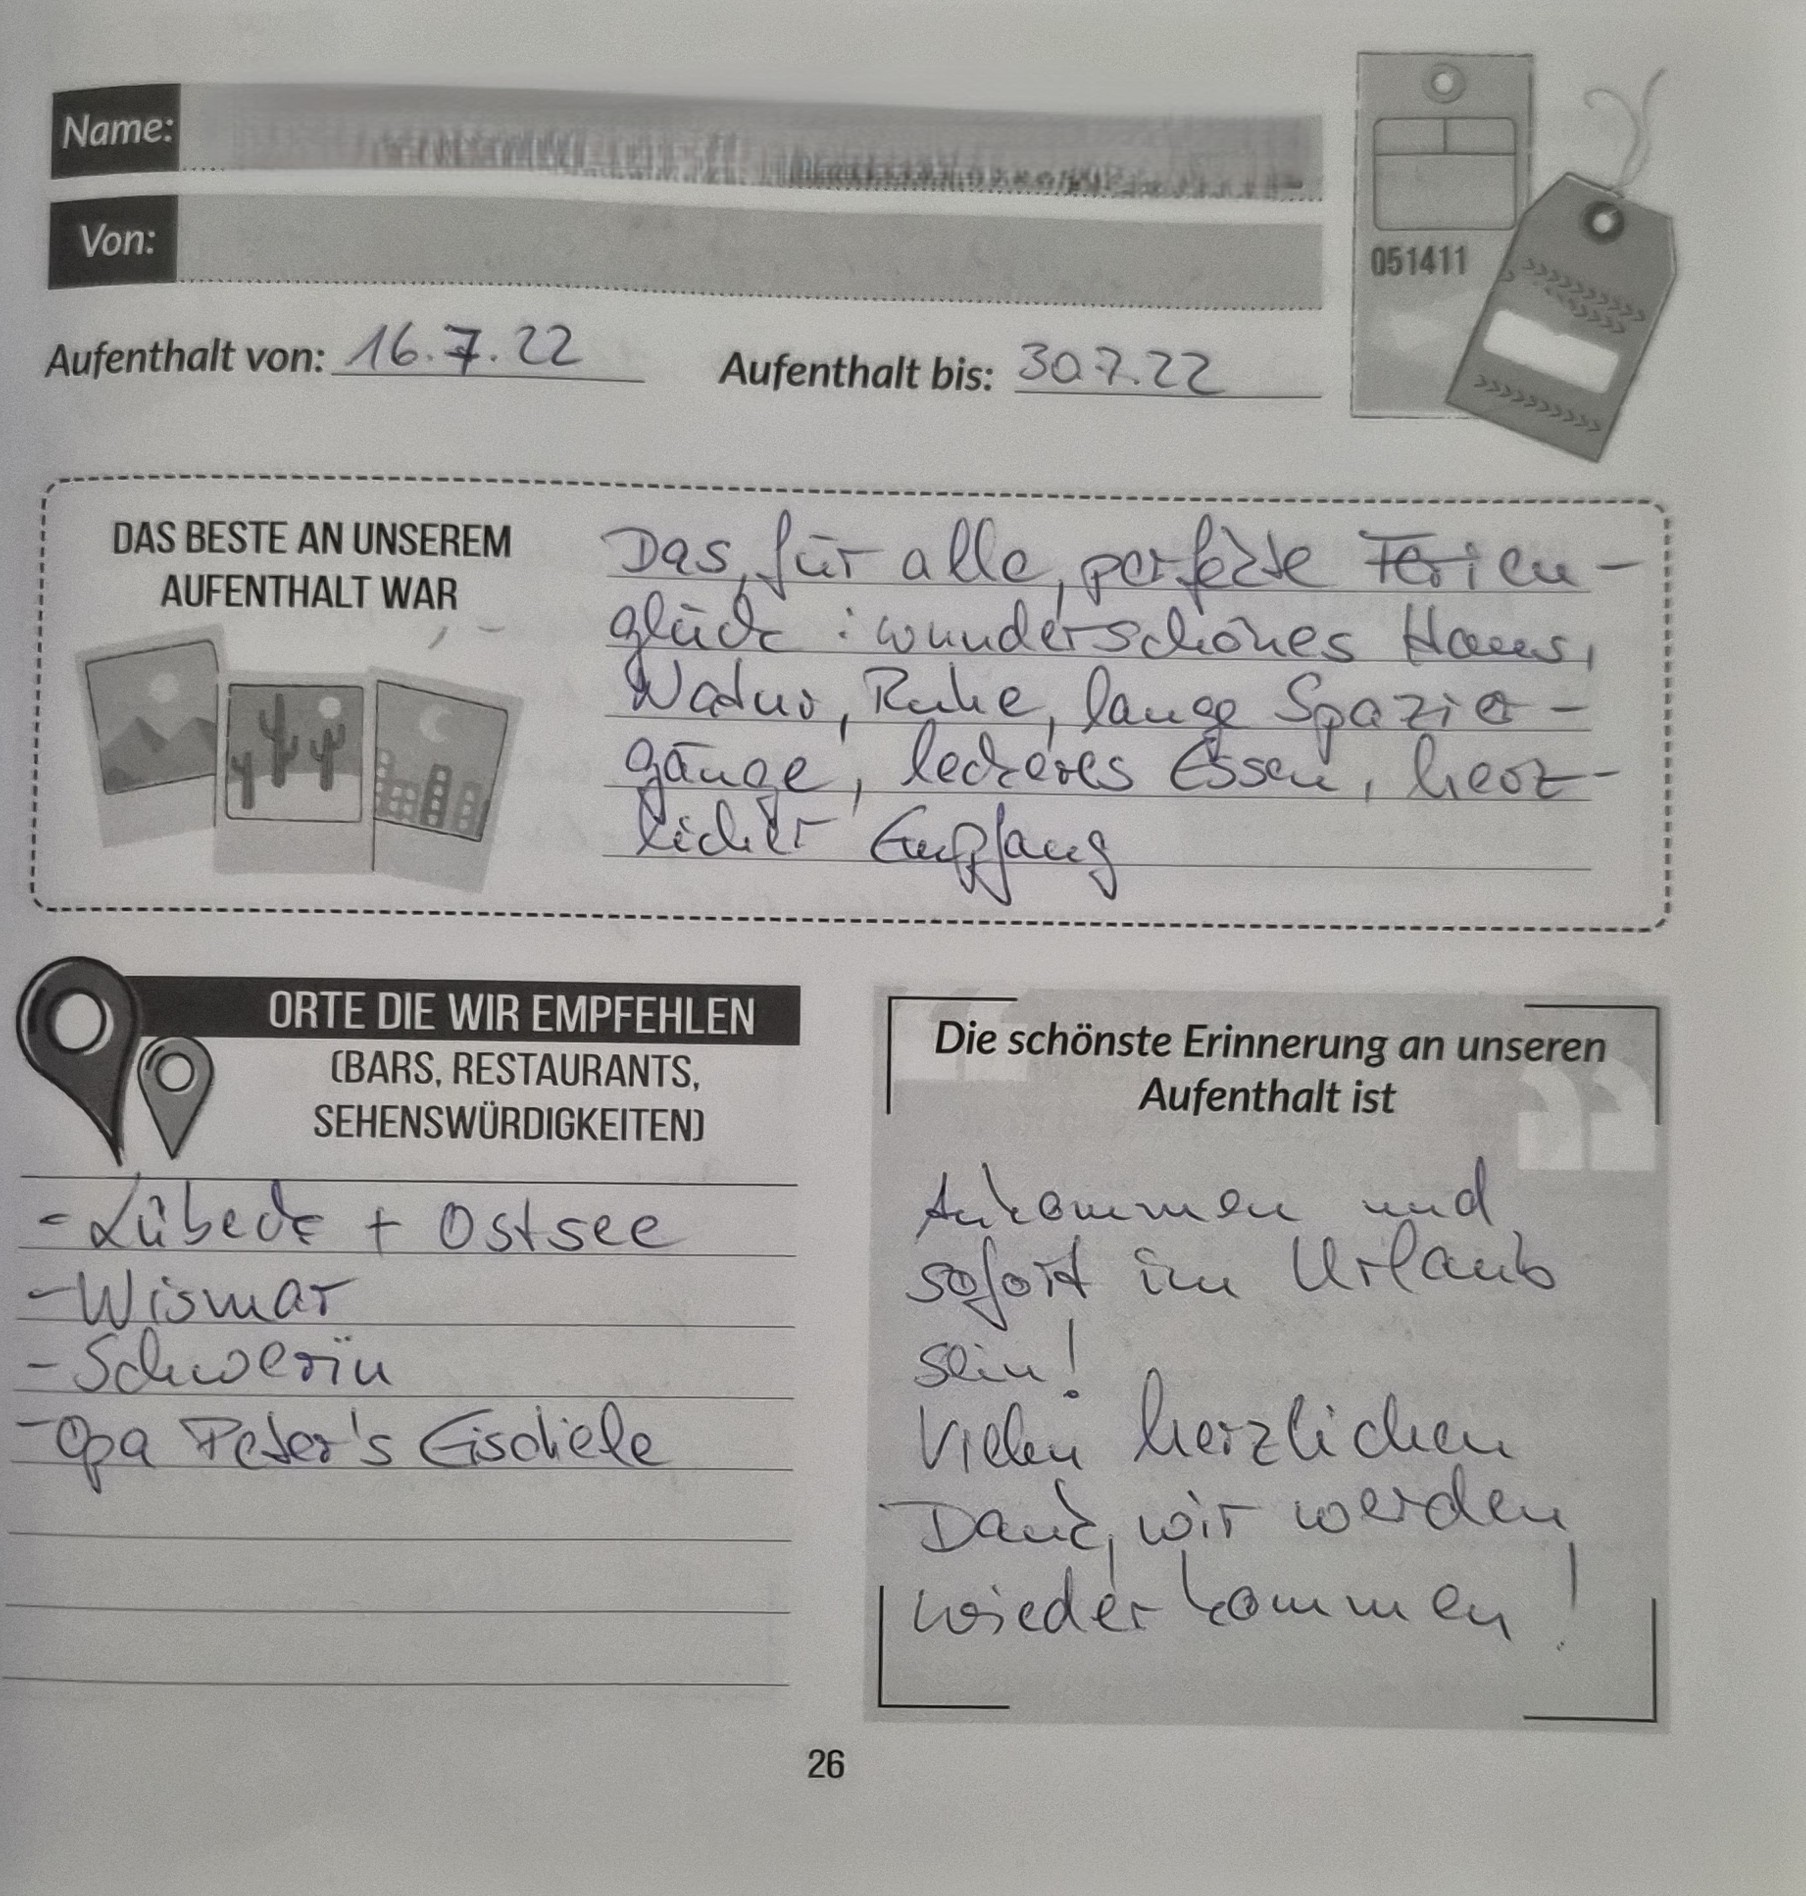 Name:
Von:
051411
Aufenthalt von: 16.7.22 Aufenthalt bis: 30.7.22
DAS BESTE AN UNSEREM
AUFENTHALT WAR
Das, für alle, perfekte Ferien-
glück : wunderschönes Haus,
Natur, Ruhe, lange Spazier-
gänge, leckeres Essen, herz-
licher Empfang
ORTE DIE WIR EMPFEHLEN
(BARS, RESTAURANTS,
SEHENSWÜRDIGKEITEN)
- Lübeck + Ostsee
- Wismar
- Schwerin
- Opa Peter's Eisdiele
Die schönste Erinnerung an unseren
Aufenthalt ist
Ankommen und
sofort im Urlaub
sein!
Vielen herzlichen
Dank, wir werden
wiederkommen!
26